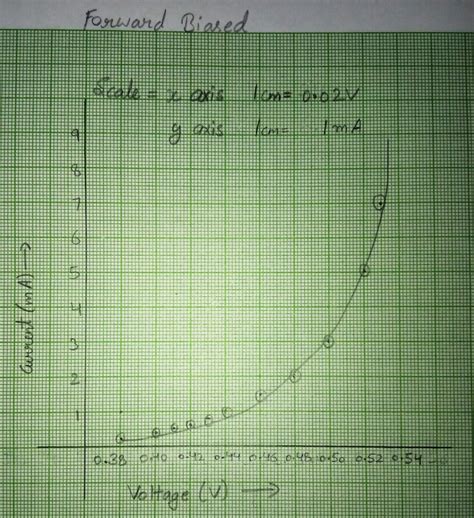 Forward Biased
Scale = x axis 1cm = 0.02V
y axis 1cm = 1mA
9
8
7
6
5
4
3
2
1
Current (mA) →
0.38 0.40 0.42 0.44 0.46 0.48 0.50 0.52 0.54
Voltage (V) →